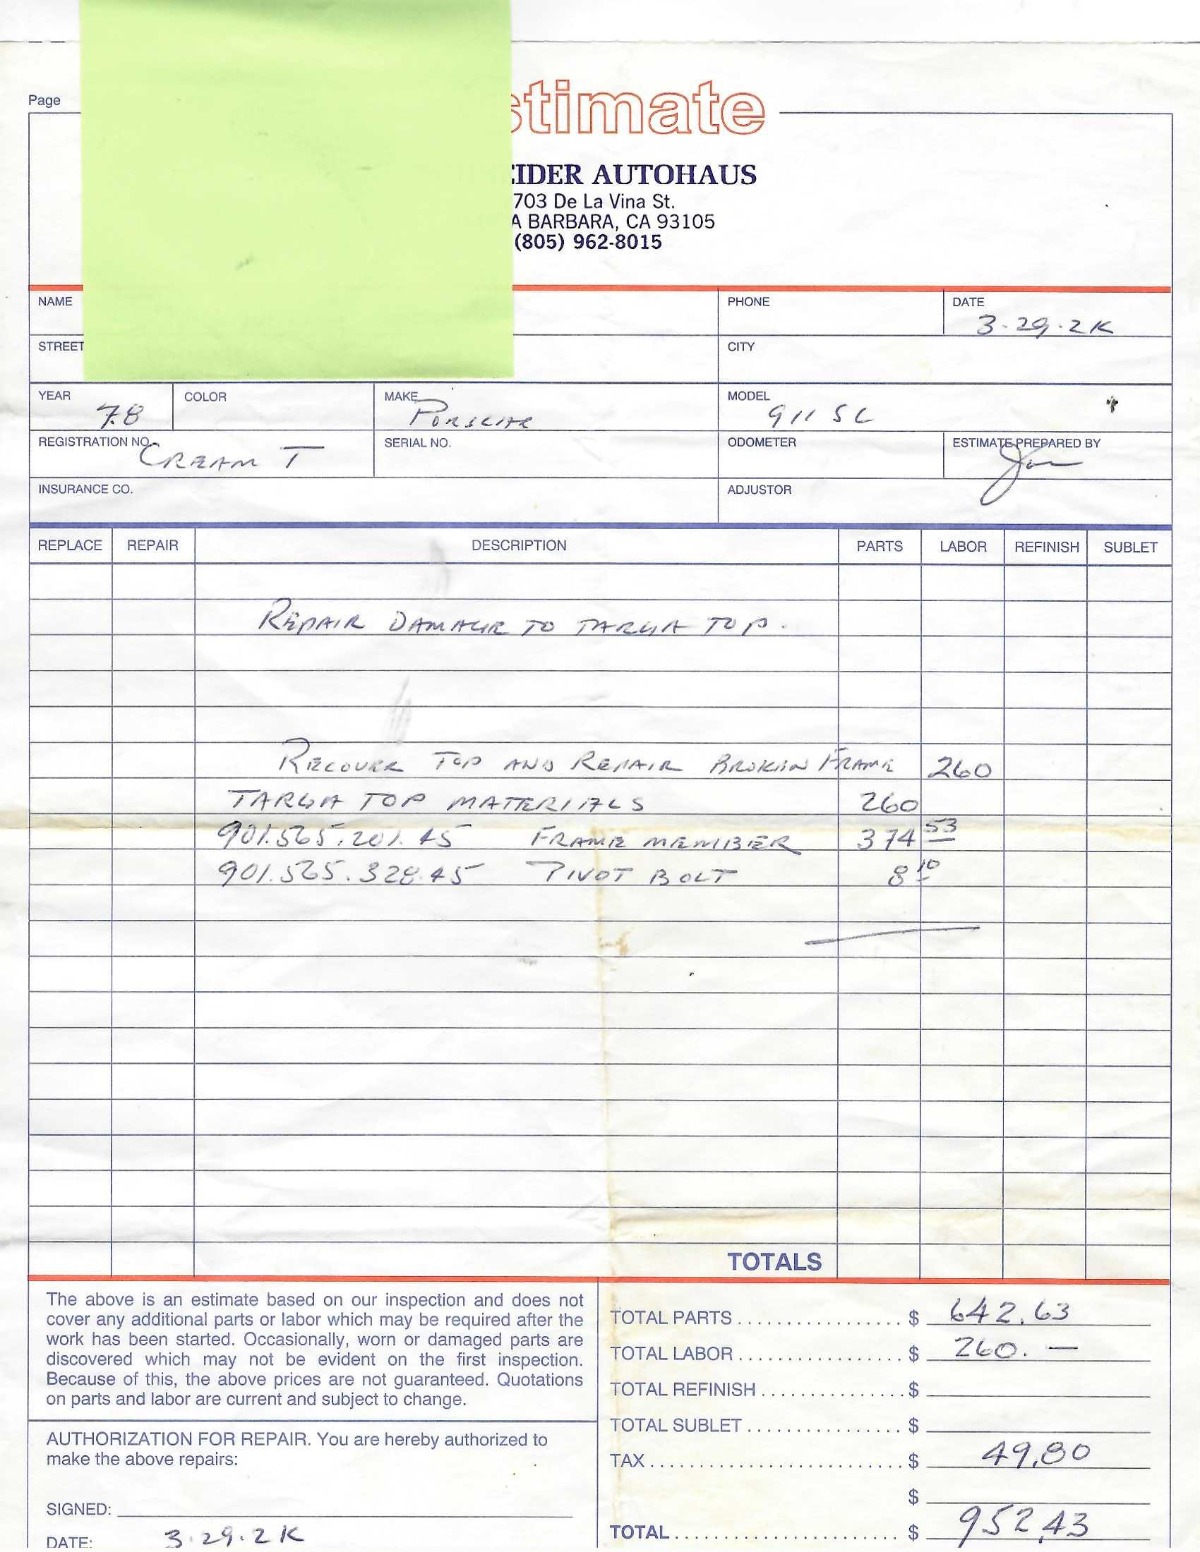 Page
stimate
EIDER AUTOHAUS
703 De La Vina St.
A BARBARA, CA 93105
(805) 962-8015
NAME PHONE DATE 3·29·2K
STREET CITY
YEAR 78 COLOR MAKE PORSCHE MODEL 911 SC
REGISTRATION NO. CREAM T SERIAL NO. ODOMETER ESTIMATE PREPARED BY
INSURANCE CO. ADJUSTOR
REPLACE REPAIR DESCRIPTION PARTS LABOR REFINISH SUBLET
REPAIR DAMAGE TO TARGA TOP.
RECOVER TOP AND REPAIR BROKEN FRAME 260
TARGA TOP MATERIALS 260
901.565.201.45 FRAME MEMBER 374 53
901.565.328.45 PIVOT BOLT 8 10
TOTALS
The above is an estimate based on our inspection and does not
cover any additional parts or labor which may be required after the
work has been started. Occasionally, worn or damaged parts are
discovered which may not be evident on the first inspection.
Because of this, the above prices are not guaranteed. Quotations
on parts and labor are current and subject to change.
AUTHORIZATION FOR REPAIR. You are hereby authorized to
make the above repairs:
SIGNED:
DATE: 3·29·2K
TOTAL PARTS $ 642.63
TOTAL LABOR $ 260. —
TOTAL REFINISH $
TOTAL SUBLET $
TAX $ 49.80
$
TOTAL $ 952.43